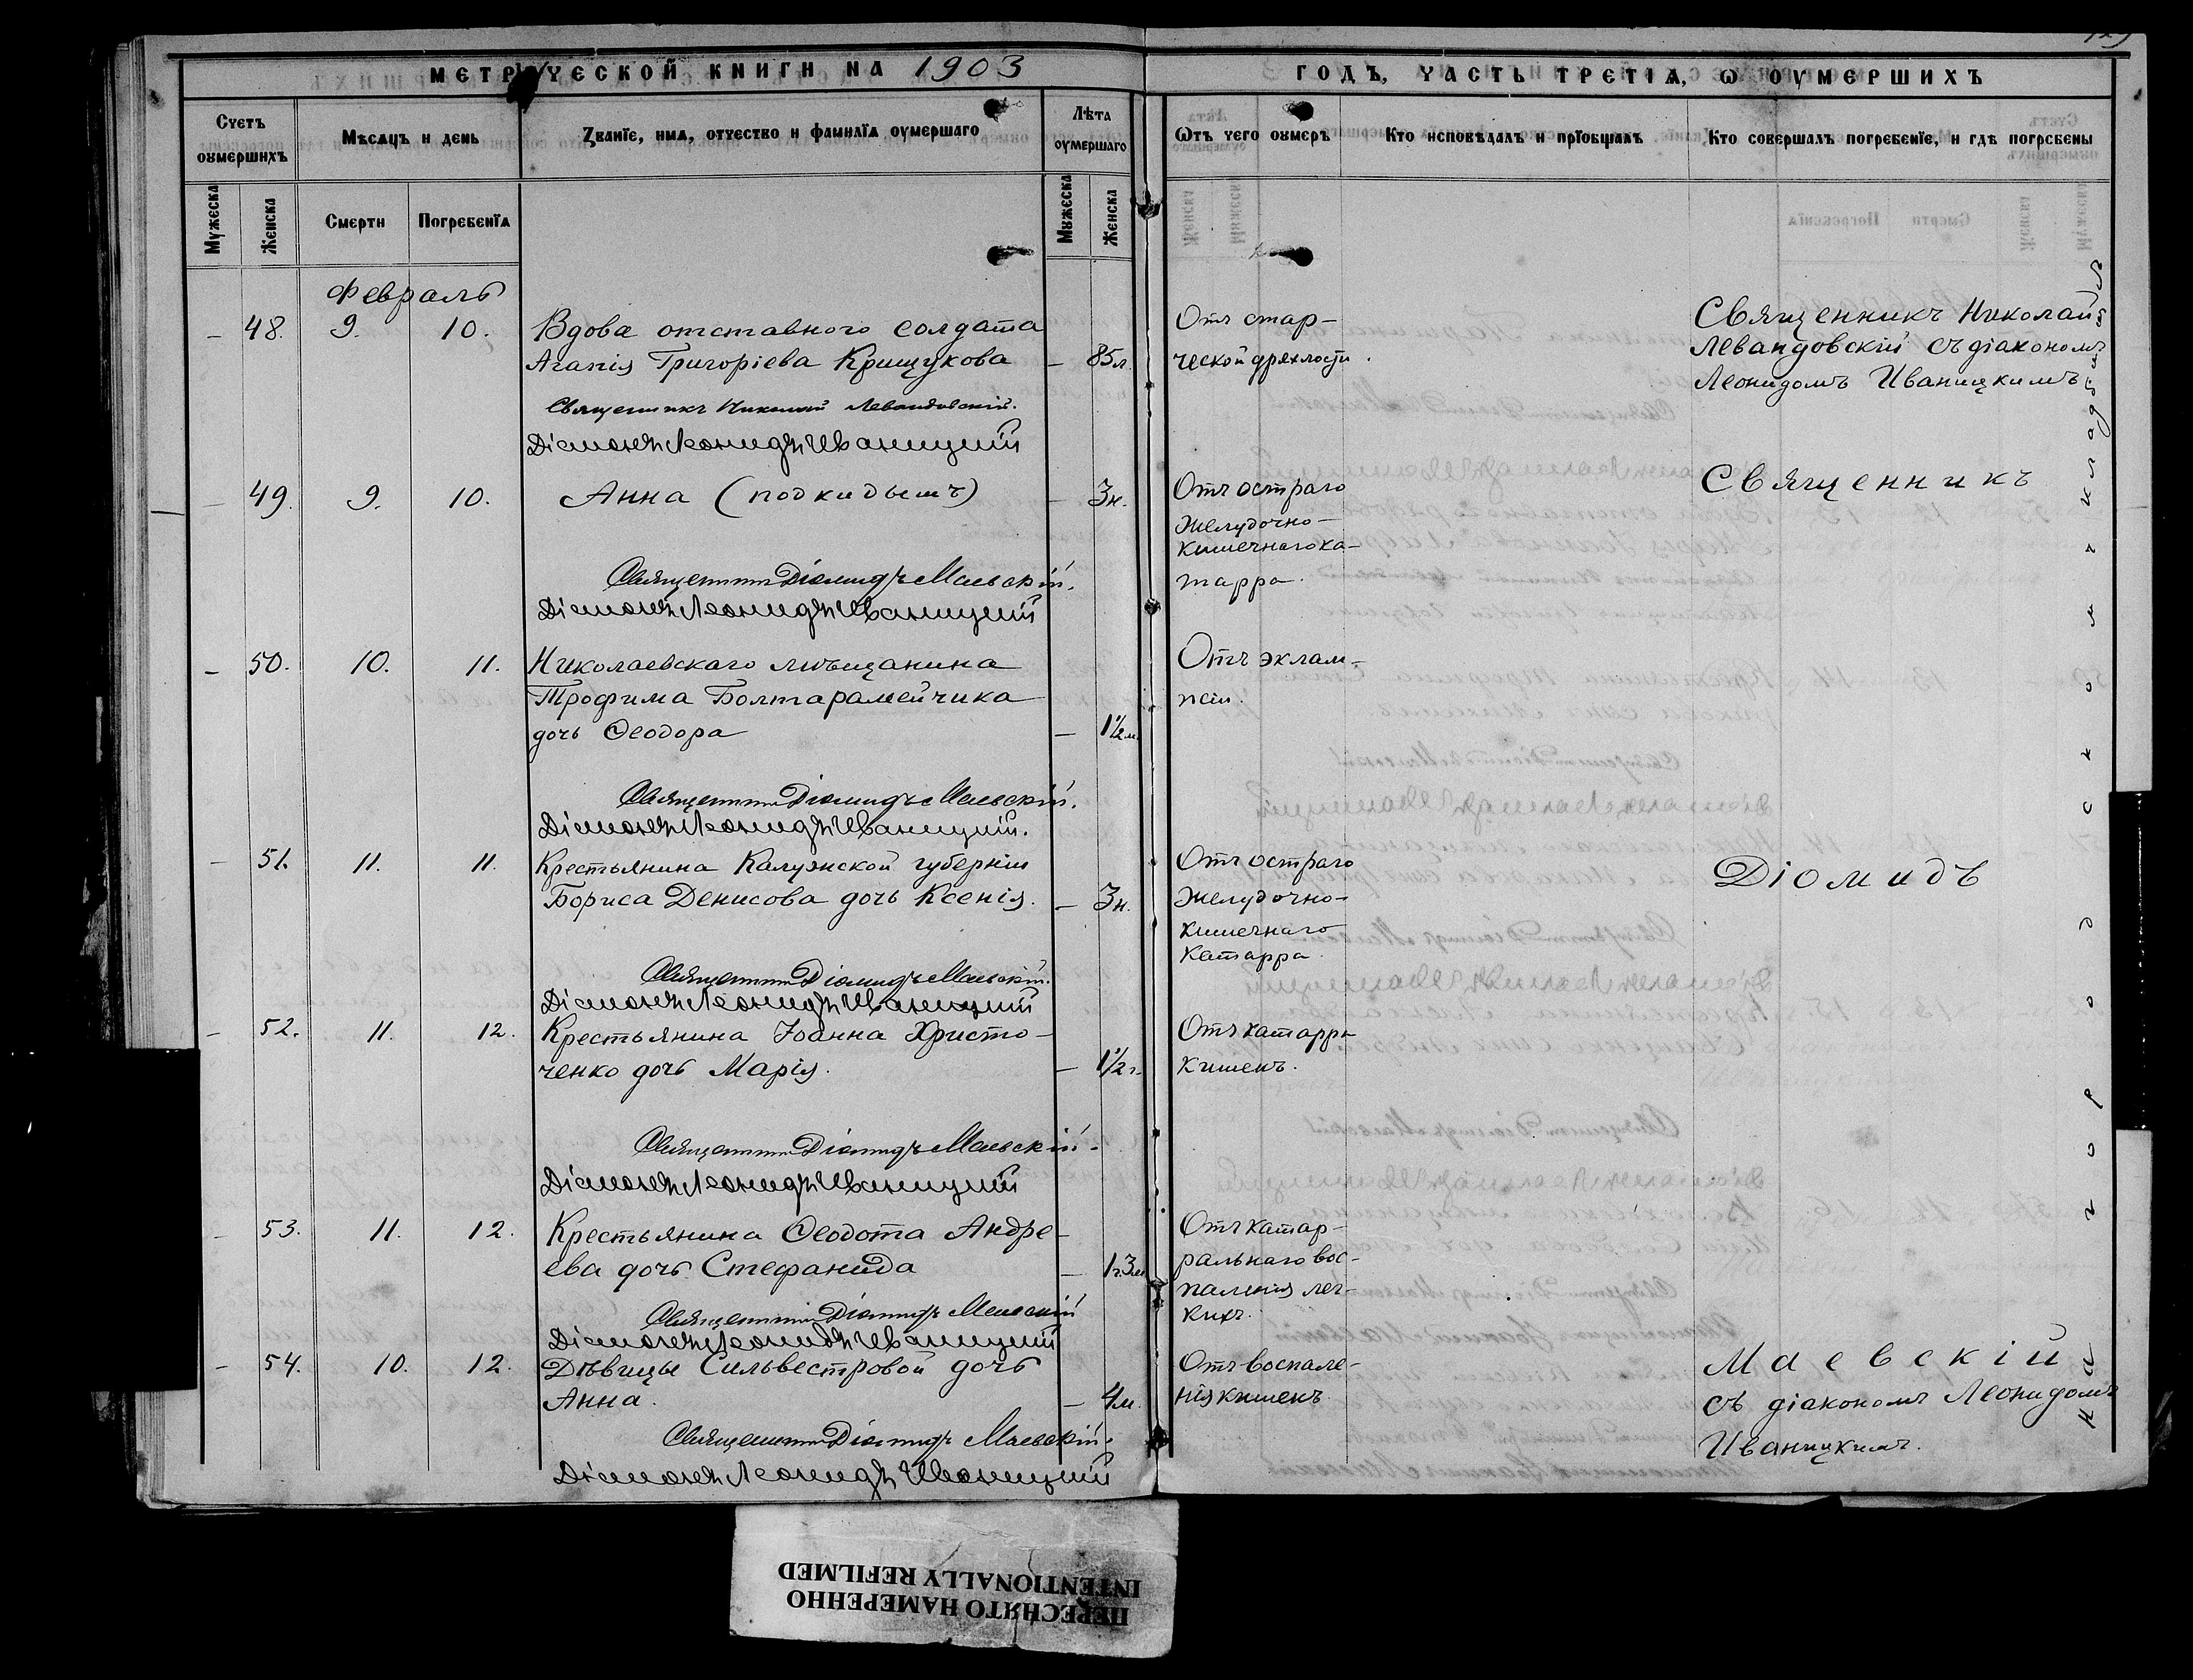 МЕТРИЧЕСКОЙ КНИГИ НА 1903
ГОДЪ, ЧАСТЬ ТРЕТІѦ, Ѡ ОУМЕРШИХЪ
Счетъ оумершихъ
Мѣсѧцъ и день
Званїе, имѧ, отчество и фамилїѧ оумершаго
Лѣта оумершаго
Ѿтъ чего оумеръ
Кто исповѣдалъ и прїобщалъ
Кто совершалъ погребенїе, и гдѣ погребены
Мужеска
Женска
Смерти
Погребенїѧ
Мужеска
Женска
Февраль
– 48. 9. 10. Вдова отставного солдата
Агапія Григоріева Крищукова – 85 л.
Священникъ Николай Левандовскій.
Діаконъ Леонидъ Иваницкій
Отъ стар-
ческой дряхлости.
Священникъ Николай
Левандовскій съ діакономъ
Леонидомъ Иваницкимъ
– 49. 9. 10. Анна (подкидышъ) – 3 н.
Священникъ Діомидъ Маевскій.
Діаконъ Леонидъ Иваницкій
Отъ остраго
желудочно-
кишечнаго ка-
тарра.
Священникъ
– 50. 10. 11. Николаевскаго мѣщанина
Трофима Болтарамейчика
дочь Ѳеодора – 1½ м.
Священникъ Діомидъ Маевскій.
Діаконъ Леонидъ Иваницкій.
Отъ эклам-
псіи.
– 51. 11. 11. Крестьянина Калужской губерніи
Бориса Денисова дочь Ксенія. – 3 н.
Священникъ Діомидъ Маевскій.
Діаконъ Леонидъ Иваницкій
Отъ остраго
желудочно-
кишечнаго
катарра.
Діомидъ
– 52. 11. 12. Крестьянина Іоанна Христо-
ченко дочь Марія. – 1½ г.
Священникъ Діомидъ Маевскій.
Діаконъ Леонидъ Иваницкій
Отъ катарра
кишекъ.
– 53. 11. 12. Крестьянина Ѳеодота Андре-
ева дочь Стефанида – 1 г. 3 м.
Священникъ Діомидъ Маевскій
Діаконъ Леонидъ Иваницкій
Отъ катар-
ральнаго вос-
паленія лег-
кихъ.
– 54. 10. 12. Дѣвицы Сильвестровой дочь
Анна. – 4 м.
Священникъ Діомидъ Маевскій.
Діаконъ Леонидъ Иваницкій
Отъ воспале-
нія кишекъ
Маевскій
съ діакономъ Леонидомъ
Иваницкимъ.
На городскомъ кладбищѣ
ПЕРЕСНЯТО НАМЕРЕННО
INTENTIONALLY REFILMED